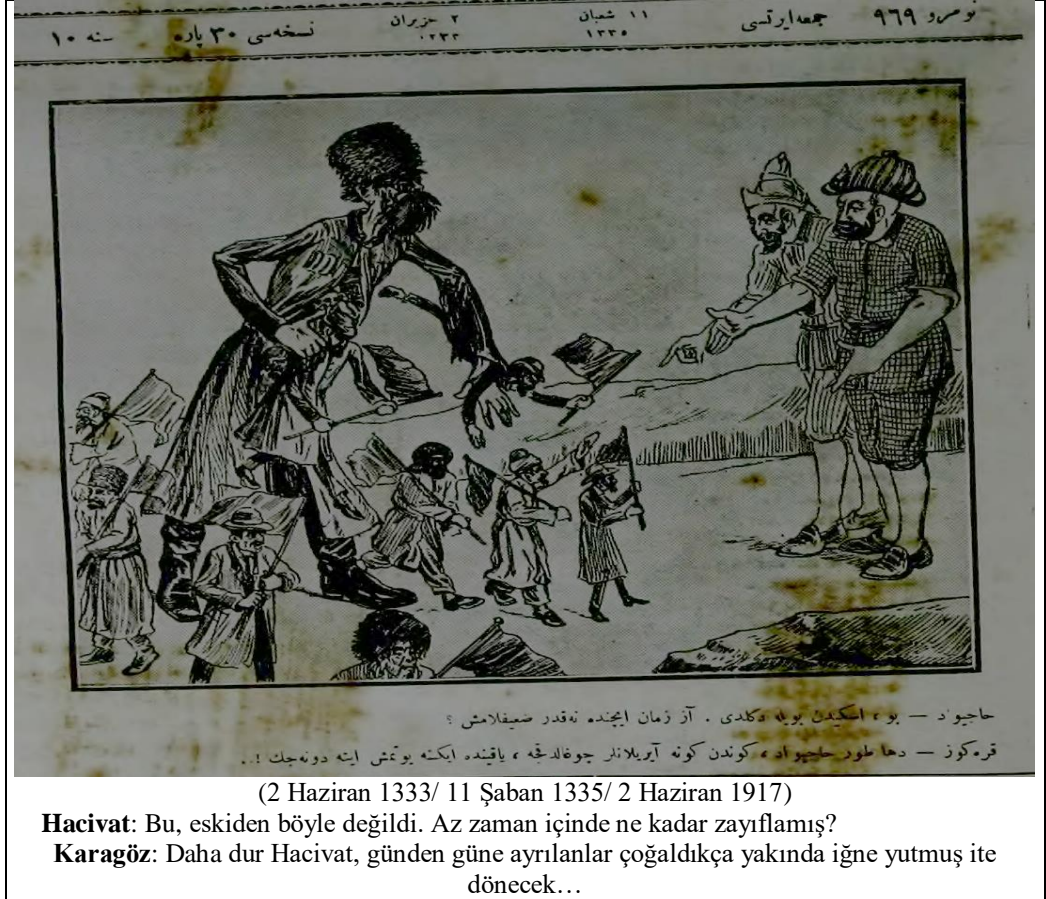 نومرو ٩٦٩ جمعه ايرتسی ١١ شعبان ٢ حزيران نسخه‌سی ٣٠ پاره سنه ١٠
١٣٣٥ ١٣٣٣
حاجيواد — بو ، اسكيدن بويله دكلدی . آز زمان ايچنده نه‌قدر ضعيفلامش ؟
قره‌كوز — دها طور حاجيواد ، كوندن كونه آيريلانلر چوغالدقجه ، ياقينده ايكنه يوتمش ايته دونه‌جك !..
(2 Haziran 1333/ 11 Şaban 1335/ 2 Haziran 1917)
Hacivat: Bu, eskiden böyle değildi. Az zaman içinde ne kadar zayıflamış?
Karagöz: Daha dur Hacivat, günden güne ayrılanlar çoğaldıkça yakında iğne yutmuş ite
dönecek…